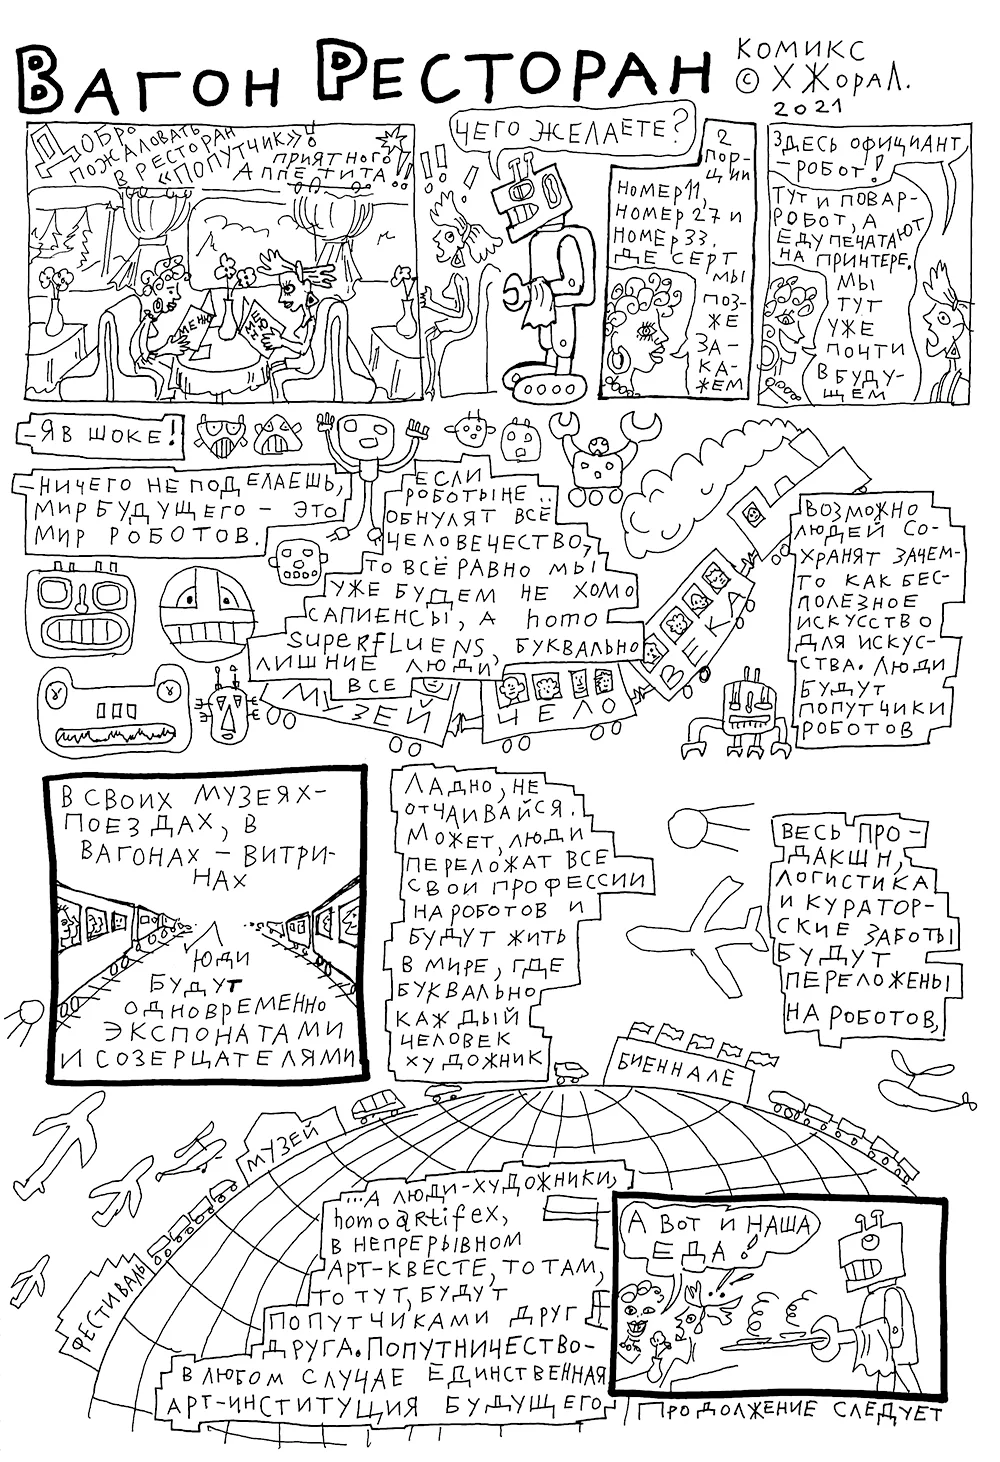 ВАГОН РЕСТОРАН
КОМИКС
© Х ЖОРАЛ.
2021
ДОБРО
ПОЖАЛОВАТЬ
В РЕСТОРАН
«ПОПУТЧИК»!
ПРИЯТНОГО
АППЕТИТА!!
МЕНЮ
МЕНЮ
!!!
ЧЕГО ЖЕЛАЕТЕ?
2
ПОР-
ЦИИ
НОМЕР 11,
НОМЕР 27 И
НОМЕР 33.
ДЕСЕРТ
МЫ
ПОЗ-
ЖЕ
ЗА-
КА-
ЖЕМ
ЗДЕСЬ ОФИЦИАНТ
РОБОТ!
ТУТ И ПОВАР-
РОБОТ, А
ЕДУ ПЕЧАТАЮТ
НА ПРИНТЕРЕ.
МЫ
ТУТ
УЖЕ
ПОЧТИ
В БУДУ-
ЩЕМ
-Я В ШОКЕ!
-НИЧЕГО НЕ ПОДЕЛАЕШЬ,
МИР БУДУЩЕГО - ЭТО
МИР РОБОТОВ.
ЕСЛИ
РОБОТЫ НЕ
ОБНУЛЯТ ВСЁ
ЧЕЛОВЕЧЕСТВО,
ТО ВСЁ РАВНО МЫ
УЖЕ БУДЕМ НЕ ХОМО
САПИЕНСЫ, А homo
superfluens, БУКВАЛЬНО
ЛИШНИЕ ЛЮДИ
ВСЕ
МУЗЕЙ
ЧЕЛО
ВЕКА
ВОЗМОЖНО
ЛЮДЕЙ СО-
ХРАНЯТ ЗАЧЕМ-
ТО КАК БЕС-
ПОЛЕЗНОЕ
ИСКУССТВО
ДЛЯ ИСКУС-
СТВА. ЛЮДИ
БУДУТ
ПОПУТЧИКИ
РОБОТОВ
В СВОИХ МУЗЕЯХ-
ПОЕЗДАХ, В
ВАГОНАХ - ВИТРИ-
НАХ
ЛЮДИ
БУДУТ
ОДНОВРЕМЕННО
ЭКСПОНАТАМИ
И СОЗЕРЦАТЕЛЯМИ
ЛАДНО, НЕ
ОТЧАИВАЙСЯ.
МОЖЕТ, ЛЮДИ
ПЕРЕЛОЖАТ ВСЕ
СВОИ ПРОФЕССИИ
НА РОБОТОВ И
БУДУТ ЖИТЬ
В МИРЕ, ГДЕ
БУКВАЛЬНО
КАЖДЫЙ
ЧЕЛОВЕК
ХУДОЖНИК
ВЕСЬ ПРО-
ДАКШН,
ЛОГИСТИКА
И КУРАТОР-
СКИЕ ЗАБОТЫ
БУДУТ
ПЕРЕЛОЖЕНЫ
НА РОБОТОВ,
БИЕННАЛЕ
МУЗЕЙ
ФЕСТИВАЛЬ
...А ЛЮДИ-ХУДОЖНИКИ,
homo artifex,
В НЕПРЕРЫВНОМ
АРТ-КВЕСТЕ, ТО ТАМ,
ТО ТУТ, БУДУТ
ПОПУТЧИКАМИ ДРУГ
ДРУГА. ПОПУТНИЧЕСТВО-
В ЛЮБОМ СЛУЧАЕ ЕДИНСТВЕННАЯ
АРТ-ИНСТИТУЦИЯ БУДУЩЕГО
А ВОТ И НАША
ЕДА!
ПРОДОЛЖЕНИЕ СЛЕДУЕТ